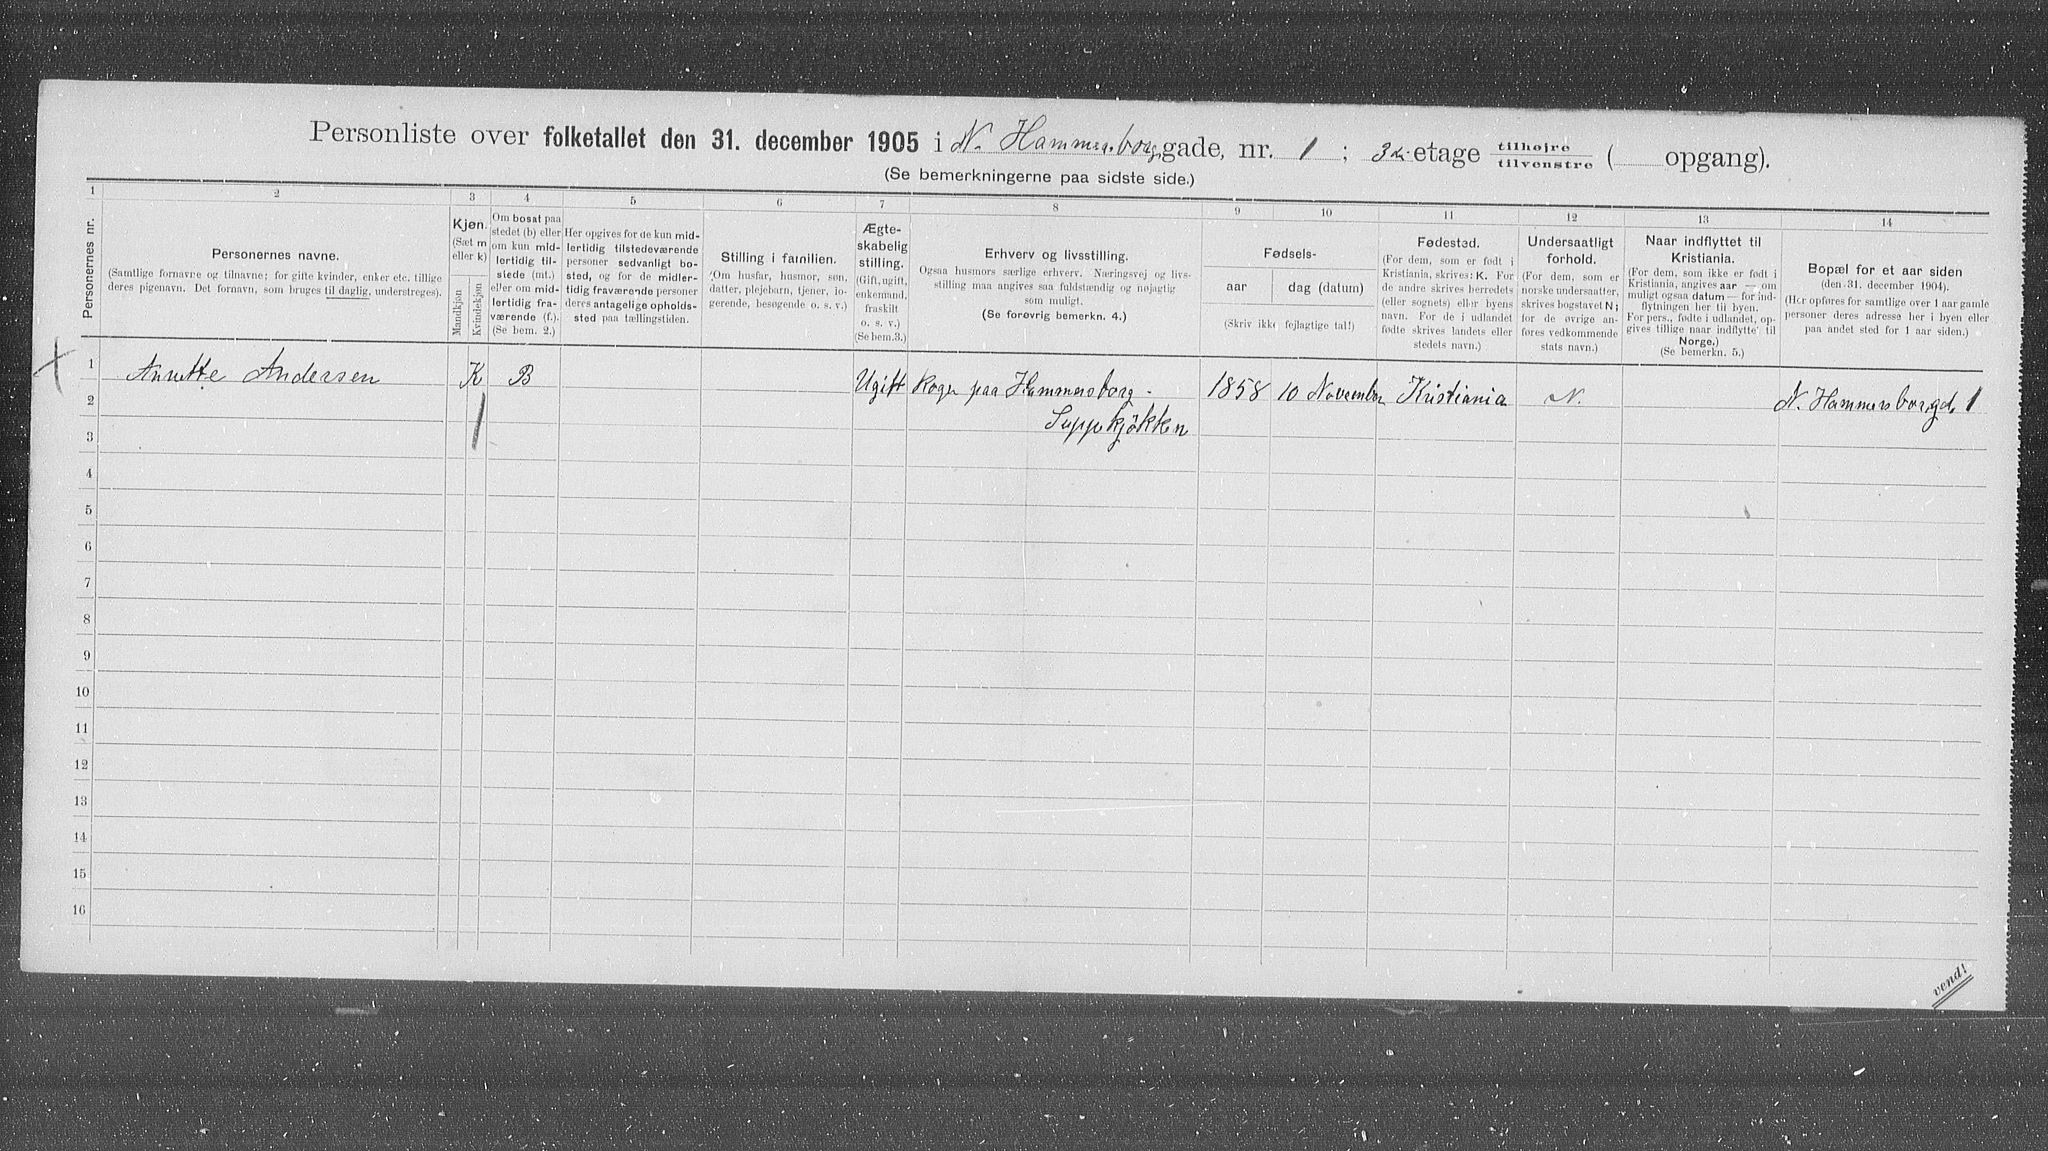 Personliste over folketallet den 31. december 1905 i N. Hammersborg gade, nr. 1 ; 3die etage tilhøjre / tilvenstre ( opgang).
(Se bemerkningerne paa sidste side.)
1 2 3 4 5 6 7 8 9 10 11 12 13 14
Personernes nr.
Personernes navne.
(Samtlige fornavne og tilnavne; for gifte kvinder, enker etc. tillige
deres pigenavn. Det fornavn, som bruges til daglig, understreges).
Kjøn.
(Sæt m
eller k)
Mandkjøn
Kvindekjøn
Om bosat paa
stedet (b) eller
om kun mid-
lertidig til-
stede (mt.)
eller om mid-
lertidig fra-
værende (f.).
(Se bem. 2.)
Her opgives for de kun mid-
lertidig tilstedeværende
personer sedvanligt bo-
sted, og for de midler-
tidig fraværende personer
deres antagelige opholds-
sted paa tællingstiden.
Stilling i familien.
(Om husfar, husmor, søn,
datter, plejebarn, tjener, lo-
gerende, besøgende o. s. v.)
Ægte-
skabelig
stilling.
(Gift, ugift,
enkemand,
fraskilt
o. s. v.)
(Se bem. 3.)
Erhverv og livsstilling.
Ogsaa husmors særlige erhverv. Næringsvej og livs-
stilling maa angives saa fuldstændig og nøjagtig
som muligt.
(Se forøvrig bemerkn. 4.)
Fødsels-
aar
dag (datum)
(Skriv ikke fejlagtige tal!)
Fødested.
(For dem, som er født i
Kristiania, skrives: K. For
de andre skrives herredets
(eller sognets) eller byens
navn. For de i udlandet
fødte skrives landets eller
stedets navn.)
Undersaatligt
forhold.
(For dem, som er
norske undersaatter,
skrives bogstavet N;
for de øvrige an-
føres vedkommende
stats navn.)
Naar indflyttet til
Kristiania.
(For dem, som ikke er født i
Kristiania, angives aar — om
muligt ogsaa datum — for ind-
flytningen her til byen.
For pers., fødte i udlandet, op-
gives tillige naar indflyttet til
Norge.)
(Se bemerkn. 5.)
Bopæl for et aar siden
(den 31. december 1904).
(Her opføres for samtlige over 1 aar gamle
personer deres adresse her i byen eller
paa andet sted for 1 aar siden.)
1 Annette Andersen K B Ugift Koger paa Hammersborg - 1858 10 November Kristiania N. N. Hammersborggd. 1
2 Suppekjökken
3
4
5
6
7
8
9
10
11
12
13
14
15
16
vend!